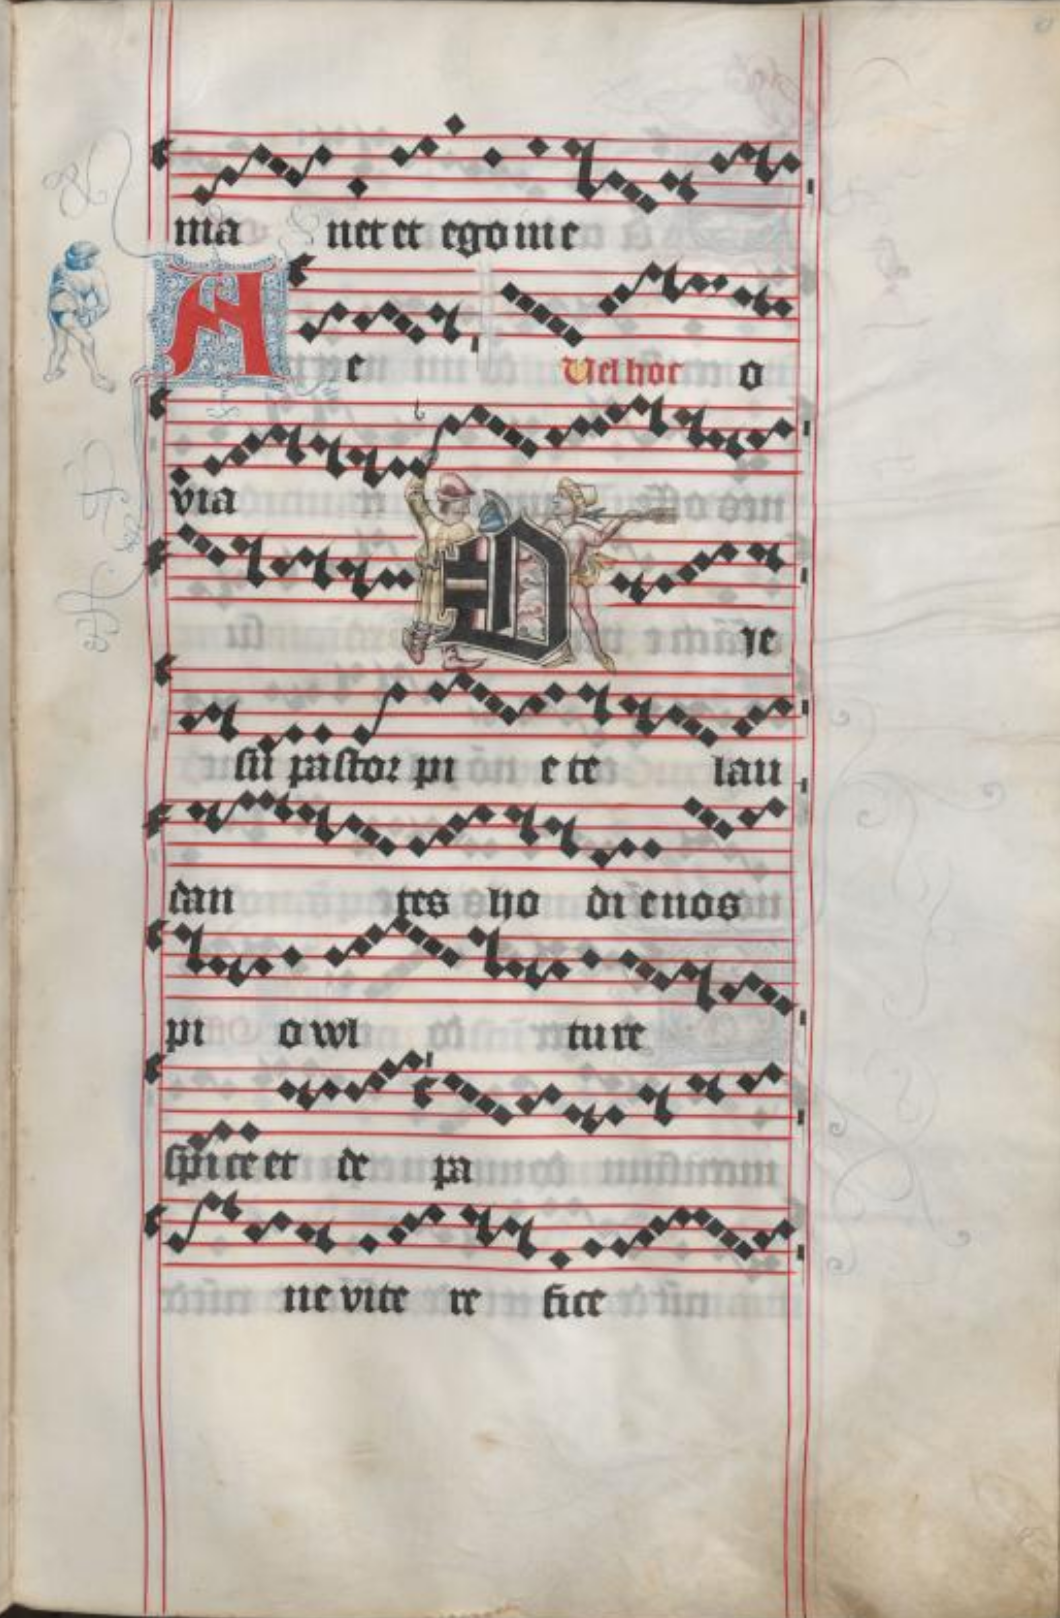 ma net et ego in e
A e Vel hoc o
via
D Je
sū pastor pi e te lau
dan tes ho di e nos
pi o vul tu re
spice et de pa
ne vite re fice